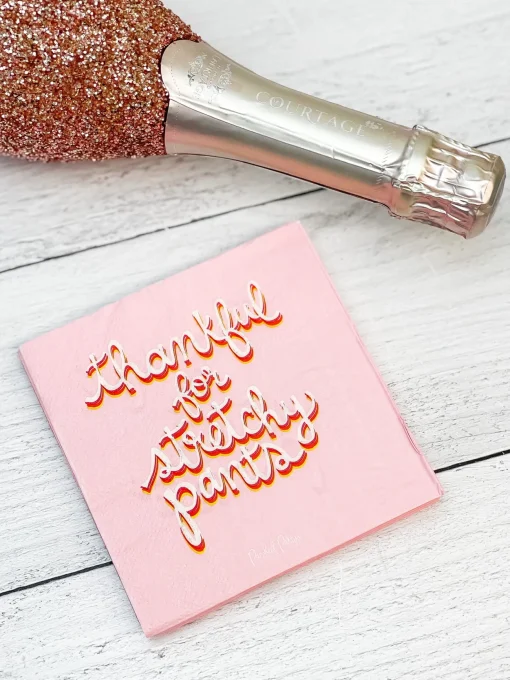 COURTAGE
thankful
for
stretchy
pants